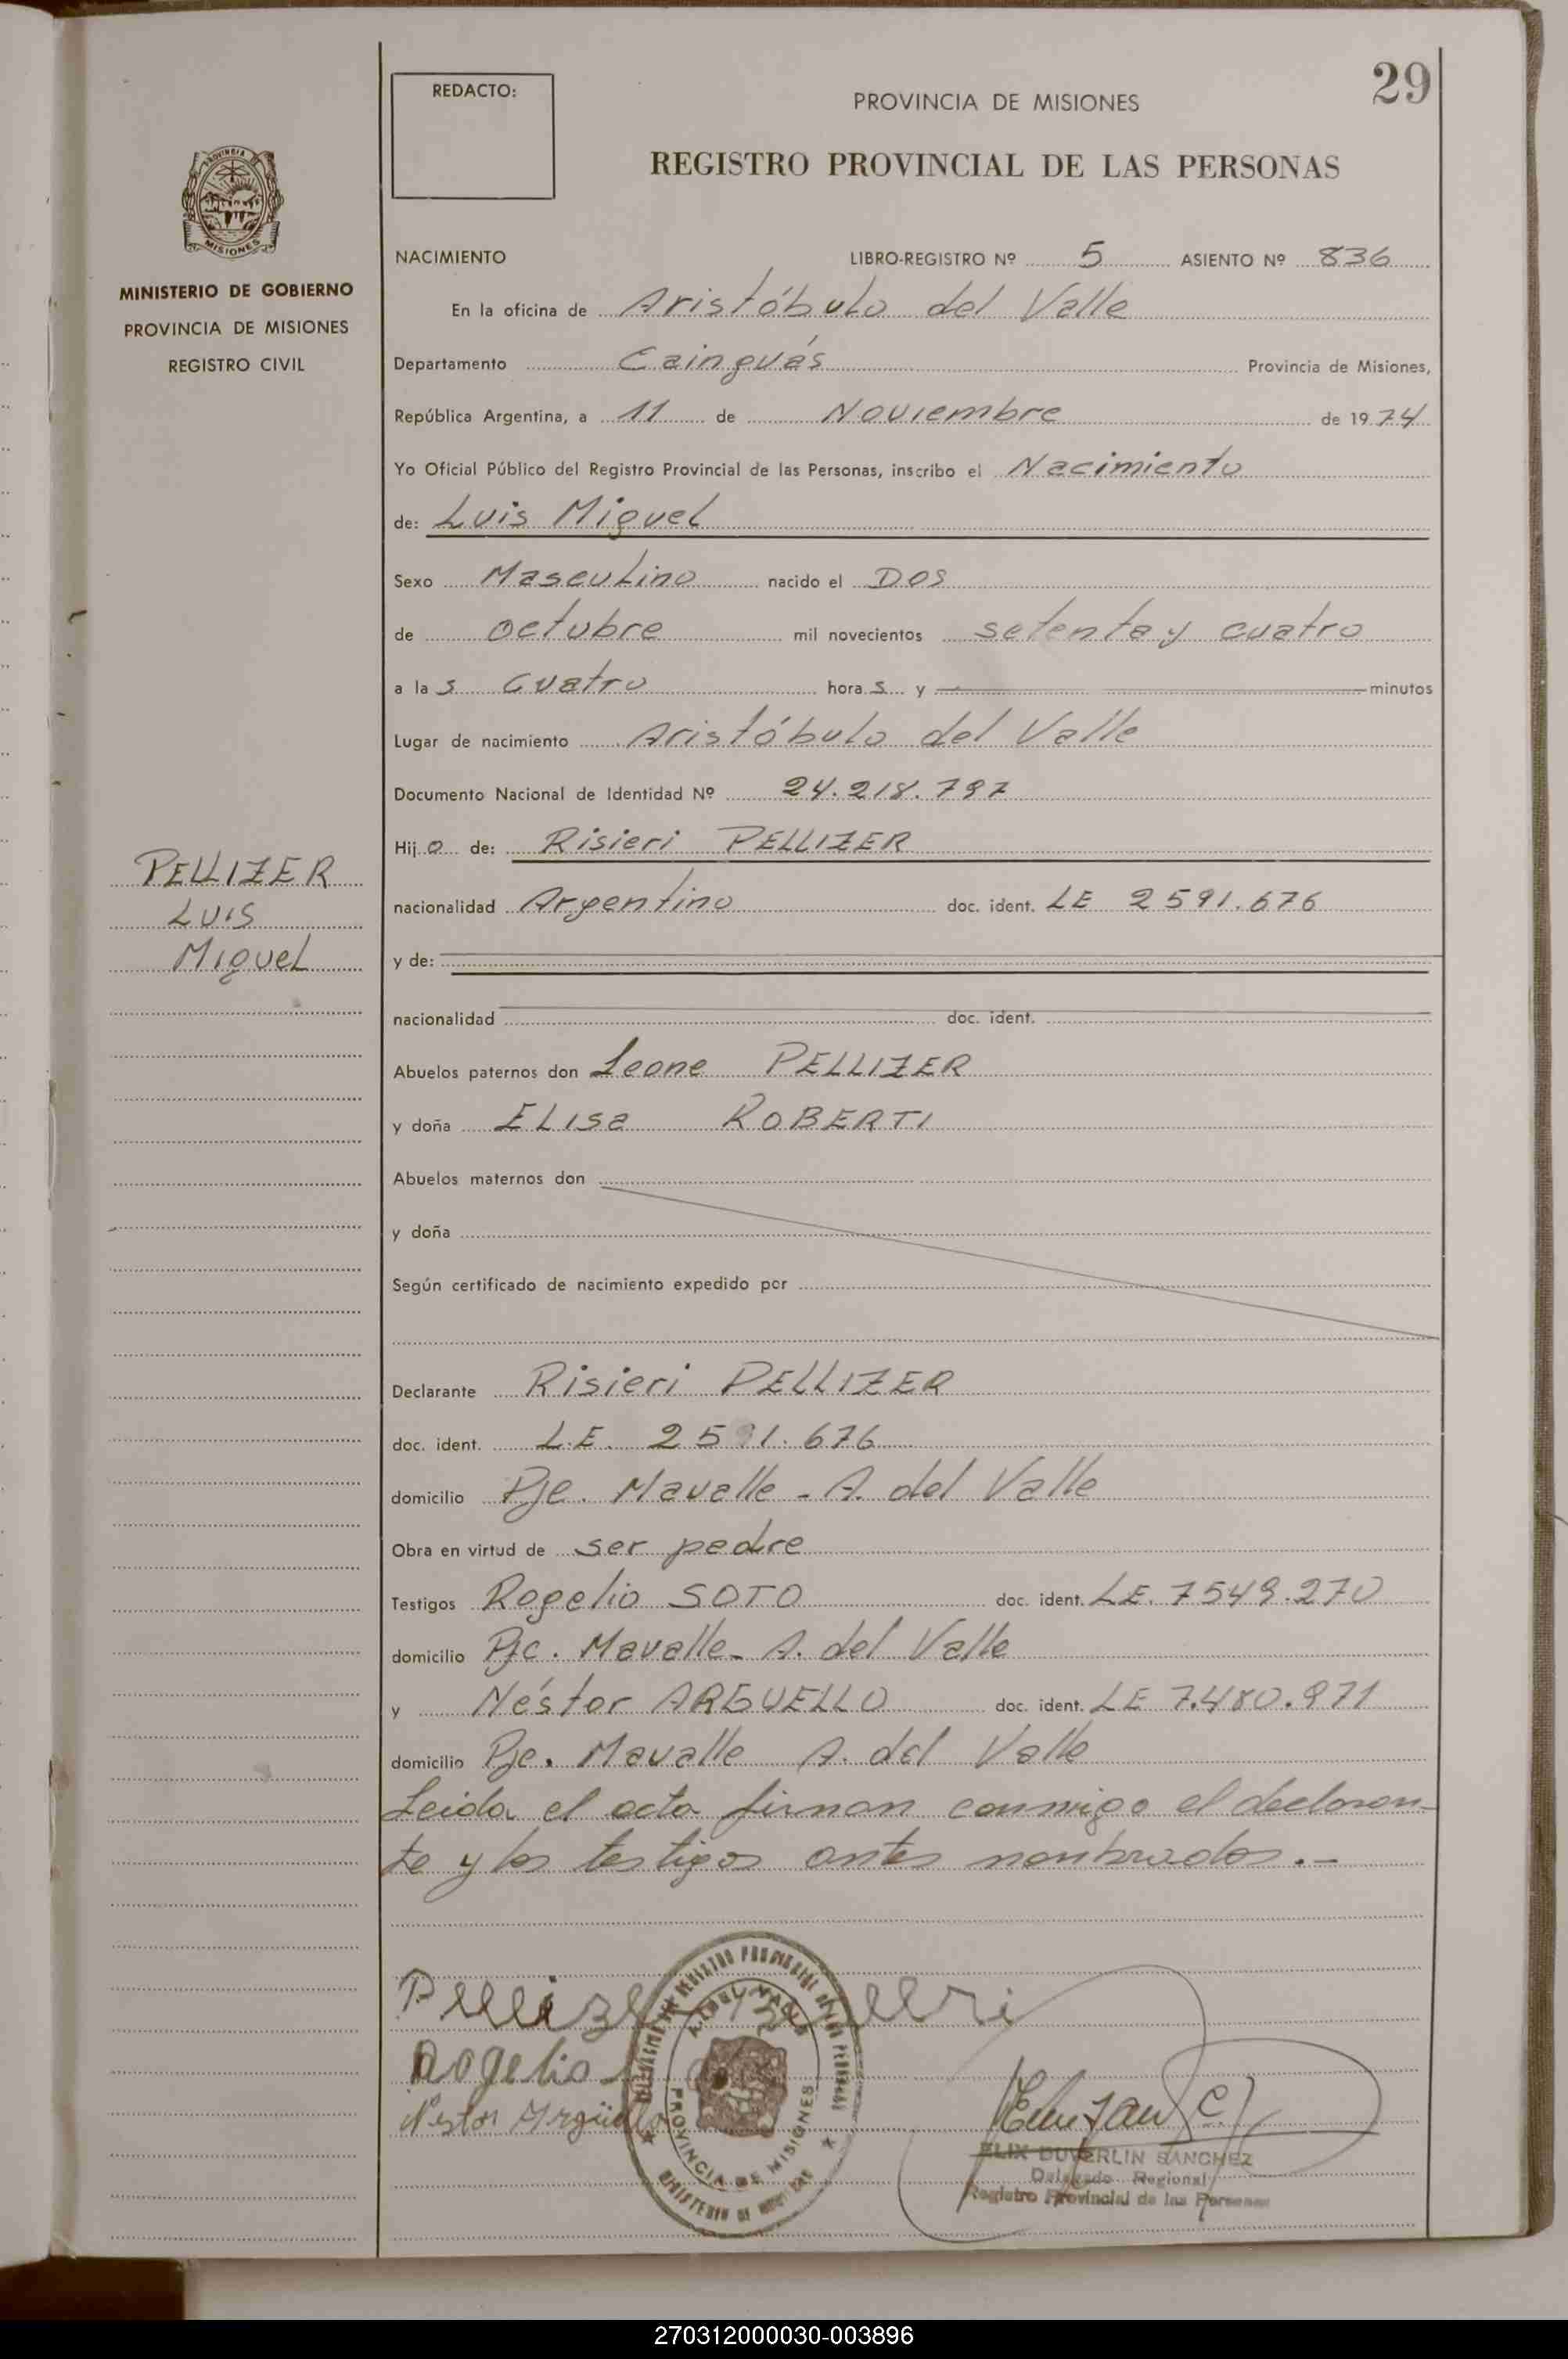 29
REDACTO:
PROVINCIA DE MISIONES
REGISTRO PROVINCIAL DE LAS PERSONAS
PROVINCIA DE
MISIONES
MINISTERIO DE GOBIERNO
PROVINCIA DE MISIONES
REGISTRO CIVIL
NACIMIENTO LIBRO-REGISTRO Nº 5 ASIENTO Nº 836
En la oficina de Aristóbulo del Valle
Departamento Cainguás Provincia de Misiones,
República Argentina, a 11 de Noviembre de 1974
Yo Oficial Público del Registro Provincial de las Personas, inscribo el Nacimiento
de: Luis Miguel
Sexo Masculino nacido el Dos
de octubre mil novecientos setenta y cuatro
a las cuatro horas y minutos
Lugar de nacimiento Aristóbulo del Valle
Documento Nacional de Identidad Nº 24.218.797
Hijo de: Risieri PELLIZER
PELLIZER
LUIS
Miguel
nacionalidad Argentino doc. ident. LE 2591.676
y de:
nacionalidad doc. ident.
Abuelos paternos don Leone PELLIZER
y doña ELISa ROBERTI
Abuelos maternos don
y doña
Según certificado de nacimiento expedido por
Declarante Risieri PELLIZER
doc. ident. L.E. 2591.676
domicilio Pje. Mavalle - A. del Valle
Obra en virtud de ser padre
Testigos Rogelio SOTO doc. ident. LE. 7549.270
domicilio Pje. Mavalle - A. del Valle
y Néstor ARGUELLO doc. ident. LE 7.480.971
domicilio Pje. Mavalle A. del Valle
Leida el acta firman conmigo el declaran-
te y los testigos antes nombrados.-
Rogelio
Nestor Argüello
PROVINCIA DE MISIONES
ELIX DUVERLIN SANCHEZ
Delegado Regional
Registro Provincial de las Personas
270312000030-003896